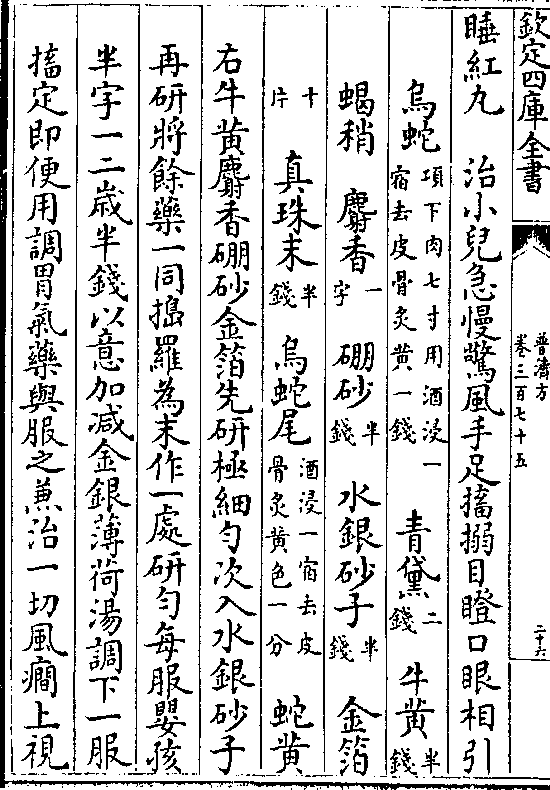 欽定四庫全書
普濟方
卷三百七十五
二十六
睡紅丸　治小兒急慢驚風手足搐搦目瞪口眼相引
烏蛇項下肉七寸用酒浸一宿去皮骨炙黃一錢　青黛二錢　牛黃半錢
蝎稍　麝香一字　硼砂半錢　水銀砂子半錢　金箔
十片　真珠末半錢　烏蛇尾酒浸一宿去皮骨炙黃色一分　蛇黃
右牛黃麝香硼砂金箔先研極細勻次入水銀砂子
再研將餘藥一同搗羅為末作一處研勻每服嬰孩
半字一二歲半錢以意加減金銀薄荷湯調下一服
搐定即便用調胃氣藥與服之兼治一切風癎上視